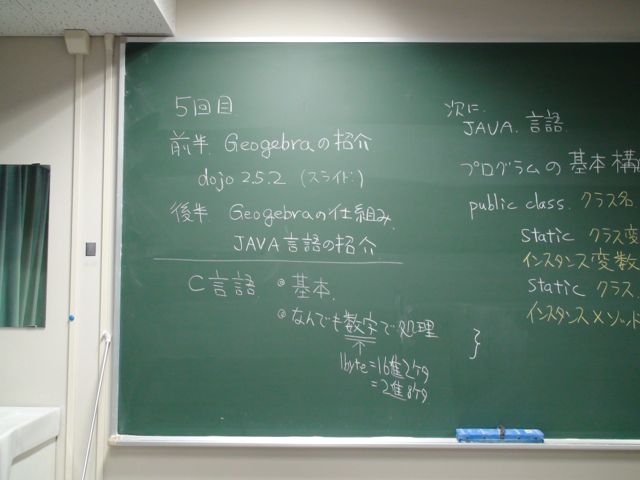 5回目
前半. Geogebraの紹介
dojo 2.5.2 (スライド:)
後半. Geogebraの仕組み.
JAVA言語の紹介
C言語. ◎基本.
◎なんでも数字で処理
↑
1byte=16進2ケタ
=2進8ケタ
次に.
JAVA. 言語.
プログラムの基本構
public class. クラス名
static クラス変
インスタンス変数
static クラス
インスタンスメソッド
}